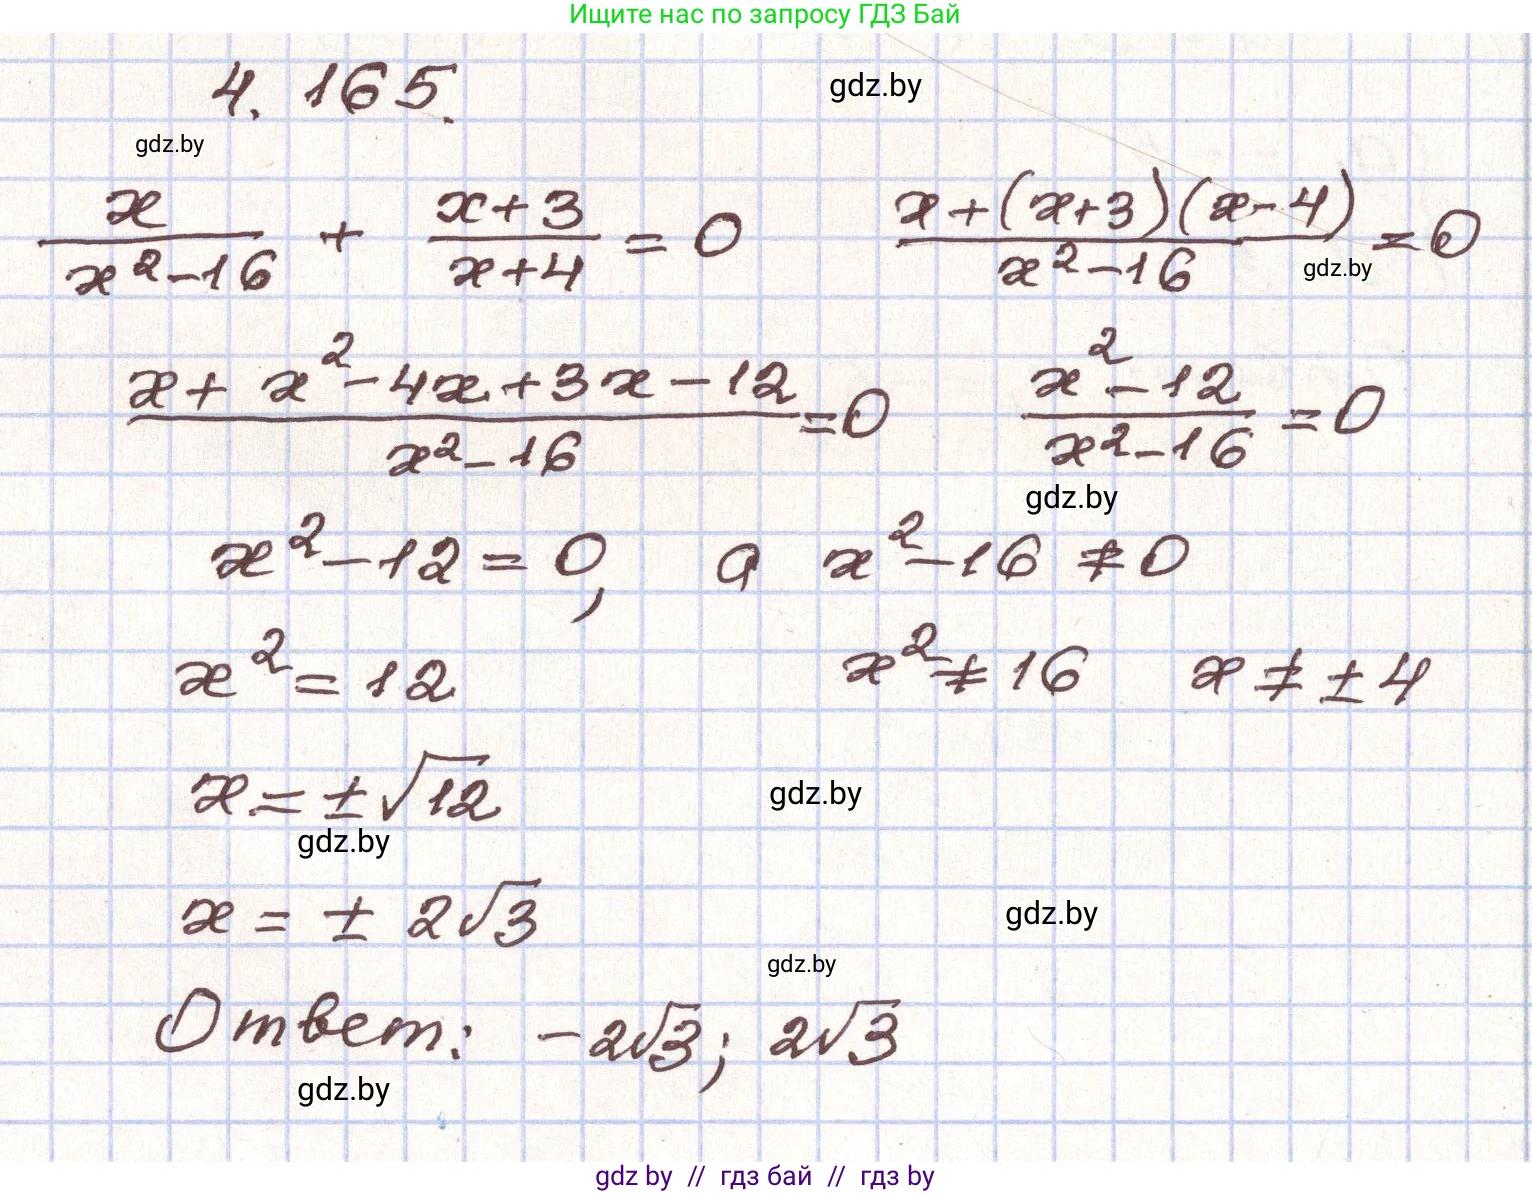 Ищите нас по запросу ГДЗ Бай
4.165.
gdz.by
gdz.by
x/(x²-16) + (x+3)/(x+4) = 0    (x+(x+3)(x-4))/(x²-16) = 0
gdz.by
(x+x²-4x+3x-12)/(x²-16) = 0    (x²-12)/(x²-16) = 0
gdz.by
x²-12=0, а x²-16≠0
x²=12    x²≠16    x≠±4
x=±√12
gdz.by
gdz.by
x=±2√3
gdz.by
gdz.by
Ответ: -2√3; 2√3
gdz.by
gdz by // гдз бай // гдз by